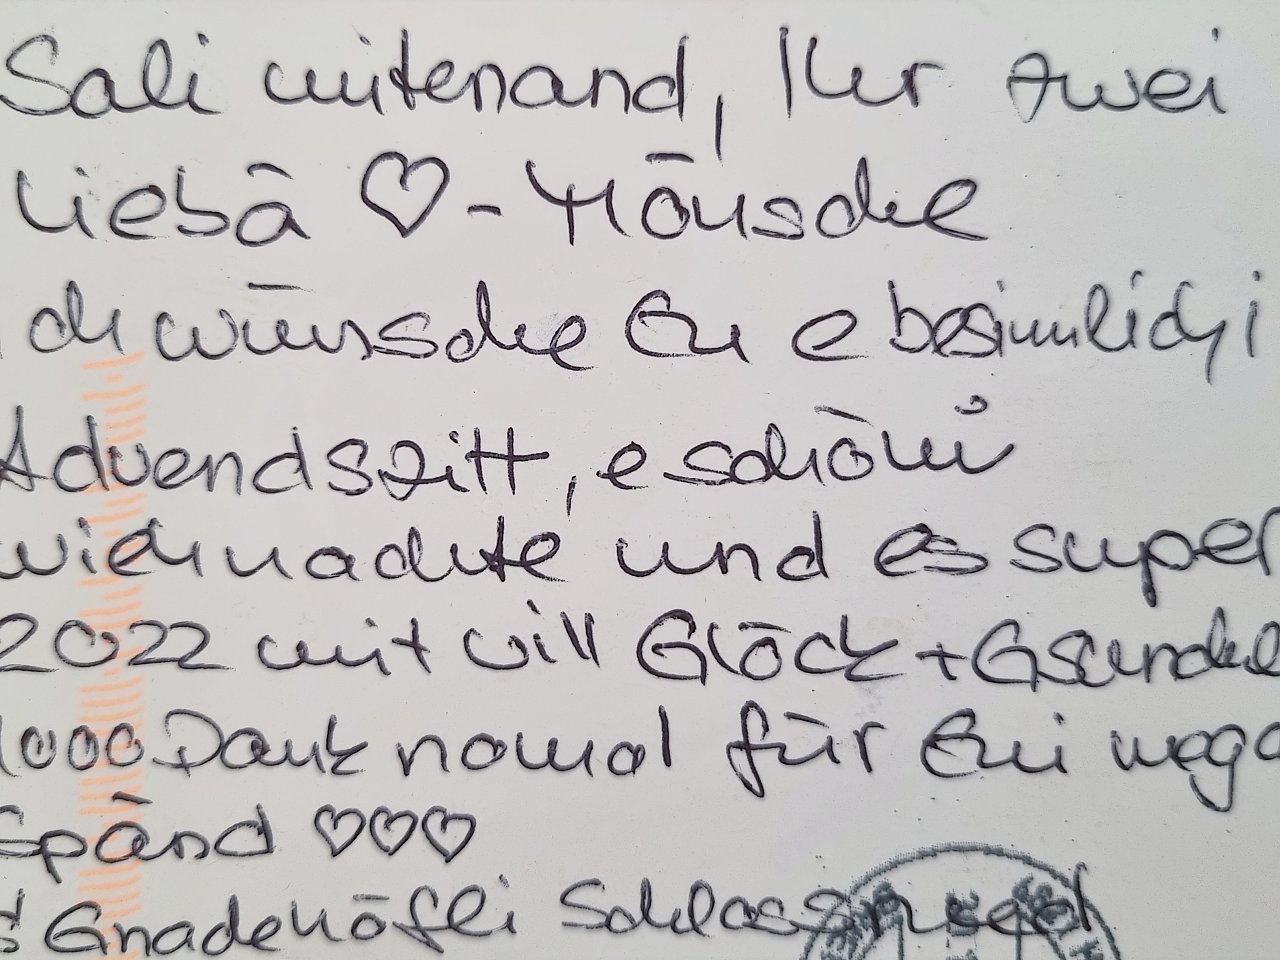 Sali mitenand, Ihr zwei
liebä ♡-Mönsche
ich wünsche Eu e besinnlichi
Advendszitt, e schöni
wiehnachte und es super
2022 mit vill Glöck + Gsundhe
1000 Dank nomol für Eui mega
Spänd ♡♡♡
s Gnadehöfli